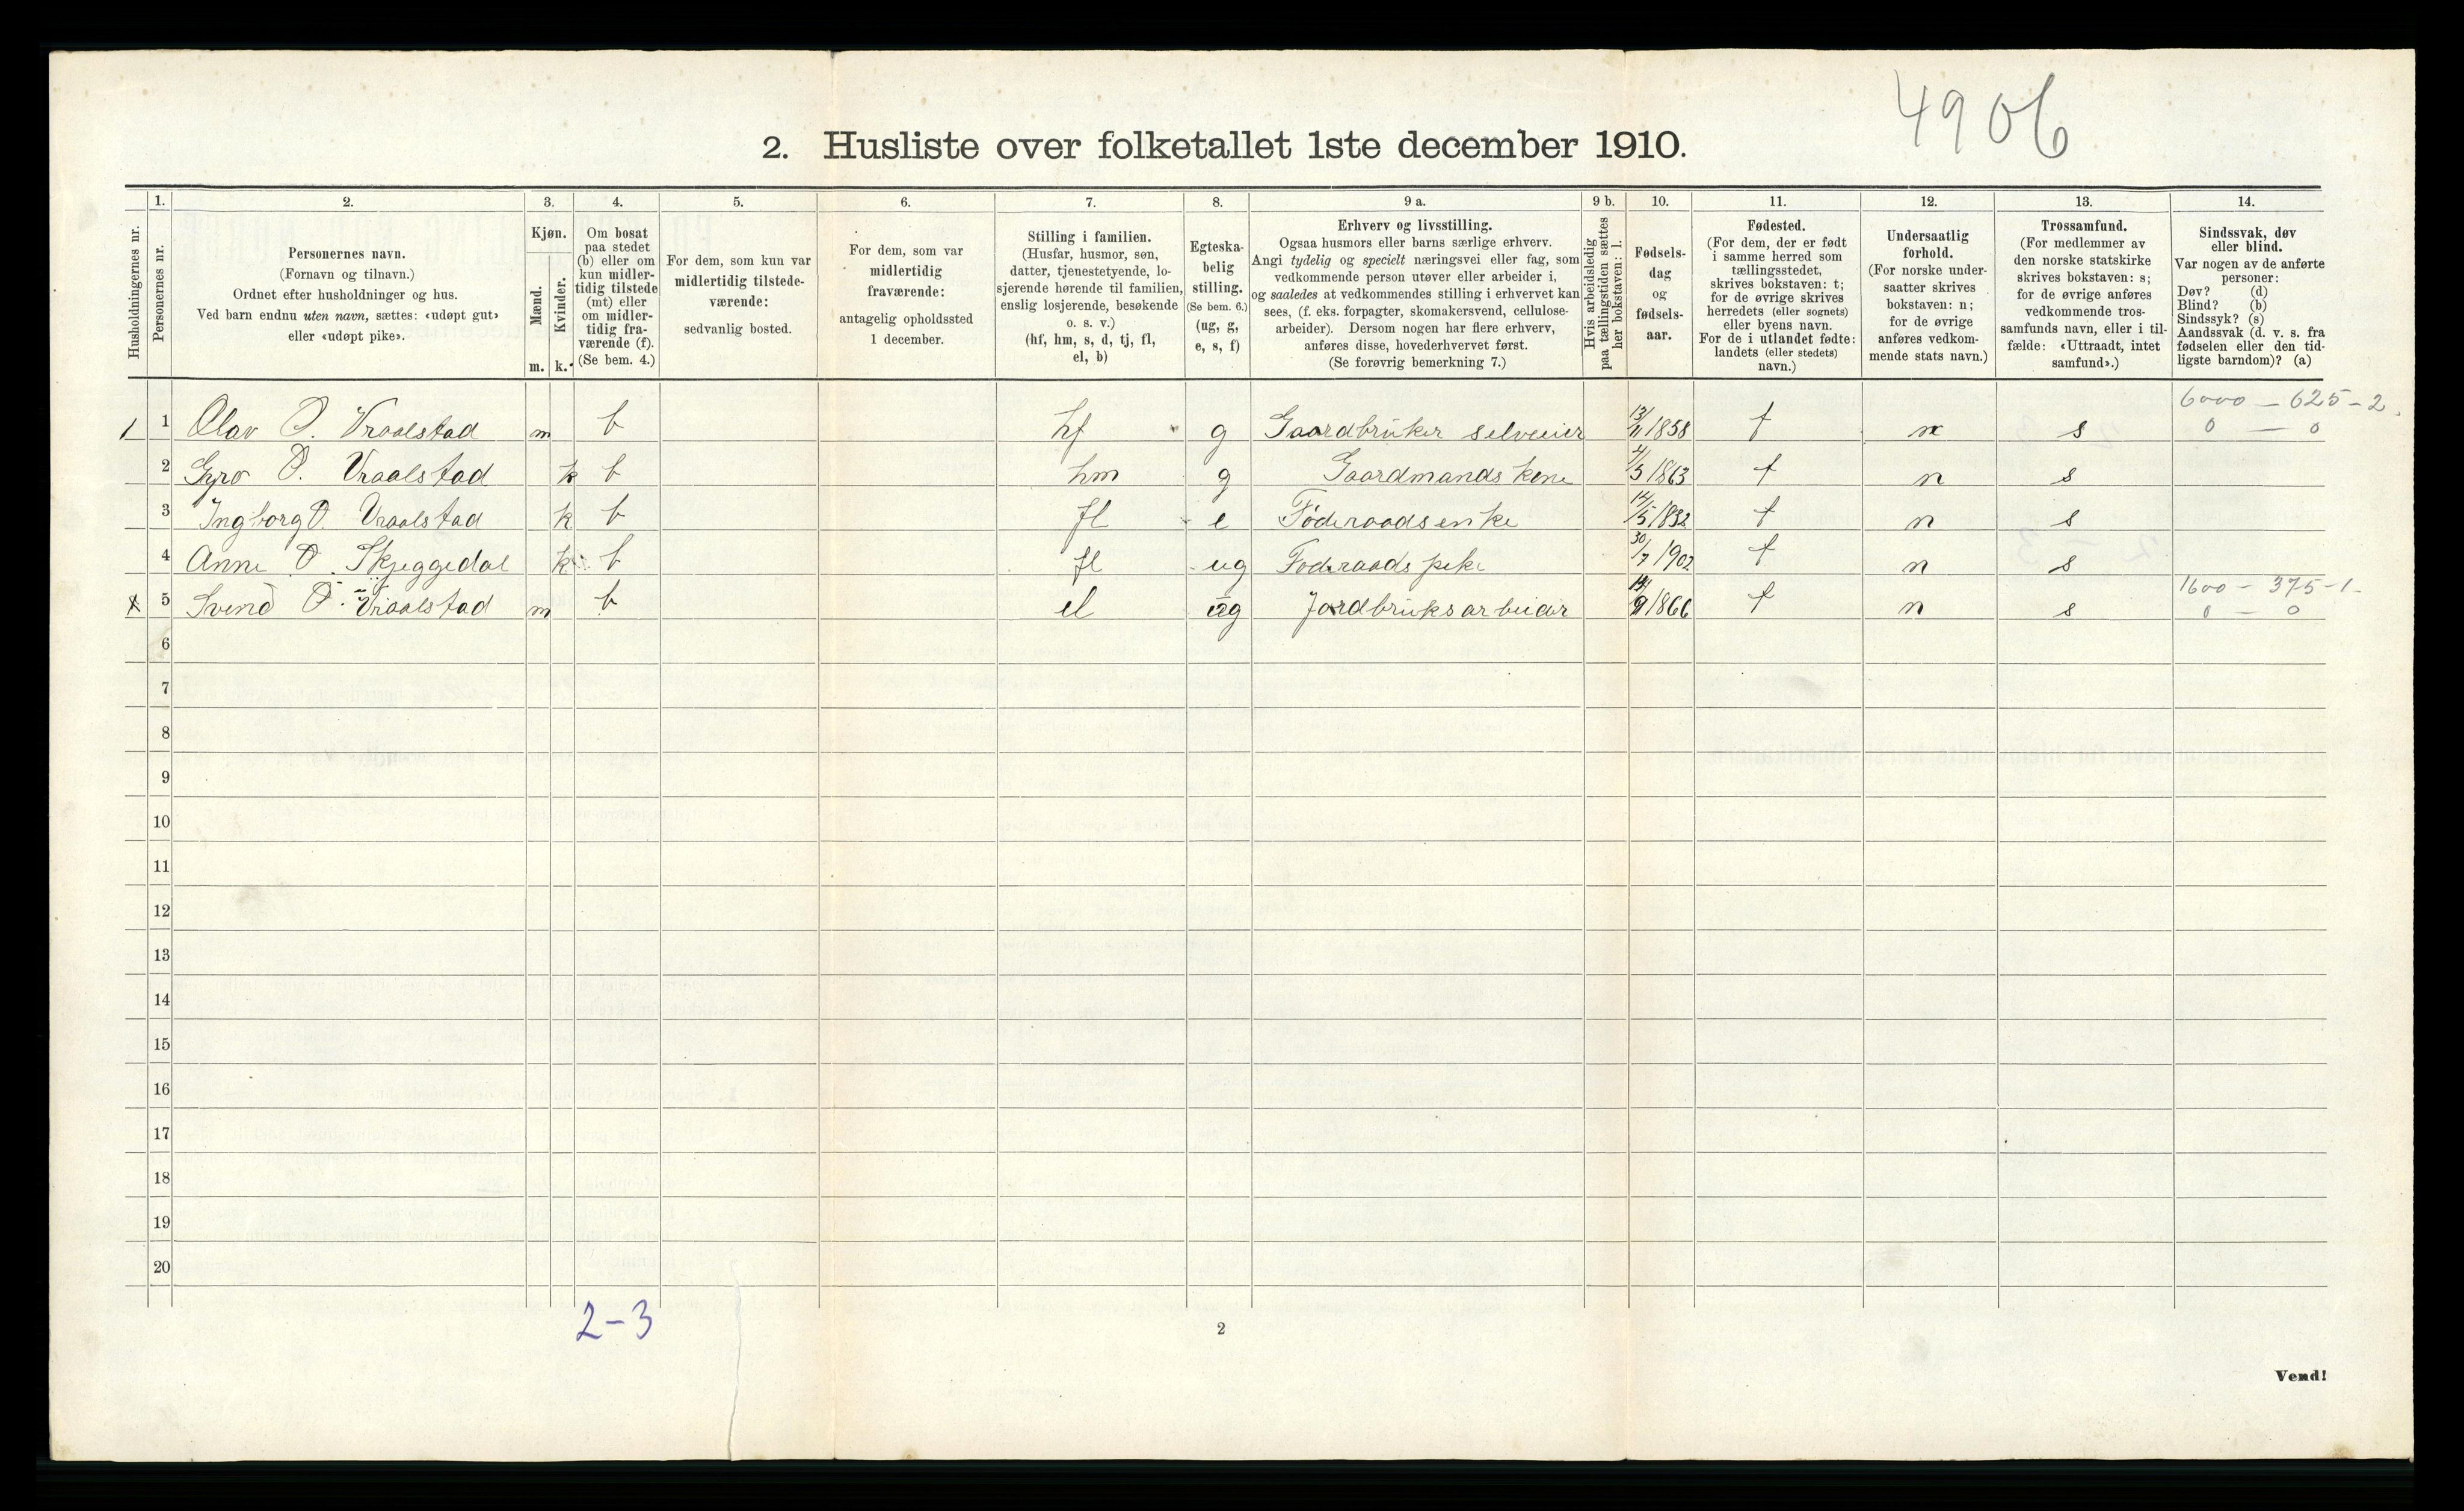 4906
2. Husliste over folketallet 1ste december 1910.
1. 2. 3. 4. 5. 6. 7. 8. 9 a. 9 b. 10. 11. 12. 13. 14.
Husholdningernes nr.
Personernes nr.
Personernes navn.
(Fornavn og tilnavn.)
Ordnet efter husholdninger og hus.
Ved barn endnu uten navn, sættes: «udøpt gut»
eller «udøpt pike».
Kjøn.
Mænd.
Kvinder.
m. k.
Om bosat
paa stedet
(b) eller om
kun midler-
tidig tilstede
(mt) eller
om midler-
tidig fra-
værende (f).
(Se bem. 4.)
For dem, som kun var
midlertidig tilstede-
værende:
sedvanlig bosted.
For dem, som var
midlertidig
fraværende:
antagelig opholdssted
1 december.
Stilling i familien.
(Husfar, husmor, søn,
datter, tjenestetyende, lo-
sjerende hørende til familien,
enslig losjerende, besøkende
o. s. v.)
(hf, hm, s, d, tj, fl,
el, b)
Egteska-
belig
stilling.
(Se bem. 6.)
(ug, g,
e, s, f)
Erhverv og livsstilling.
Ogsaa husmors eller barns særlige erhverv.
Angi tydelig og specielt næringsvei eller fag, som
vedkommende person utøver eller arbeider i,
og saaledes at vedkommendes stilling i erhvervet kan
sees, (f. eks. forpagter, skomakersvend, cellulose-
arbeider). Dersom nogen har flere erhverv,
anføres disse, hovederhvervet først.
(Se forøvrig bemerkning 7.)
Hvis arbeidsledig
paa tællingstiden sættes
her bokstaven: l.
Fødsels-
dag
og
fødsels-
aar.
Fødested.
(For dem, der er født
i samme herred som
tællingsstedet,
skrives bokstaven: t;
for de øvrige skrives
herredets (eller sognets)
eller byens navn.
For de i utlandet fødte:
landets (eller stedets)
navn.)
Undersaatlig
forhold.
(For norske under-
saatter skrives
bokstaven: n;
for de øvrige
anføres vedkom-
mende stats navn.)
Trossamfund.
(For medlemmer av
den norske statskirke
skrives bokstaven: s;
for de øvrige anføres
vedkommende tros-
samfunds navn, eller i til-
fælde: «Uttraadt, intet
samfund».)
Sindssvak, døv
eller blind.
Var nogen av de anførte
personer:
Døv? (d)
Blind? (b)
Sindssyk? (s)
Aandssvak (d. v. s. fra
fødselen eller den tid-
ligste barndom)? (a)
6000 - 625 - 2.
1 1 Olav O. Vraalstad m b hf g Gaardbruker selveier 13/11 1858 t n s 0 - 0
2 Gyro O. Vraalstad k b hm g Gaardmands kone /5 1863 t n s
3 Ingborg O. Vraalstad k b fl e Föderaadsenke 14/5 1832 t n s
4 Anne O. Skjeggedal k b fl ug Foderaads pike 30/7 1902 t n s
1600 - 375 - 1-
x 5 Svend O. Vraalstad m b el ug Jordbruksarbeider 1866 t n s 0 - 0
6
7
8
9
10
11
12
13
14
15
16
17
18
19
20
2-3
2
Vend!